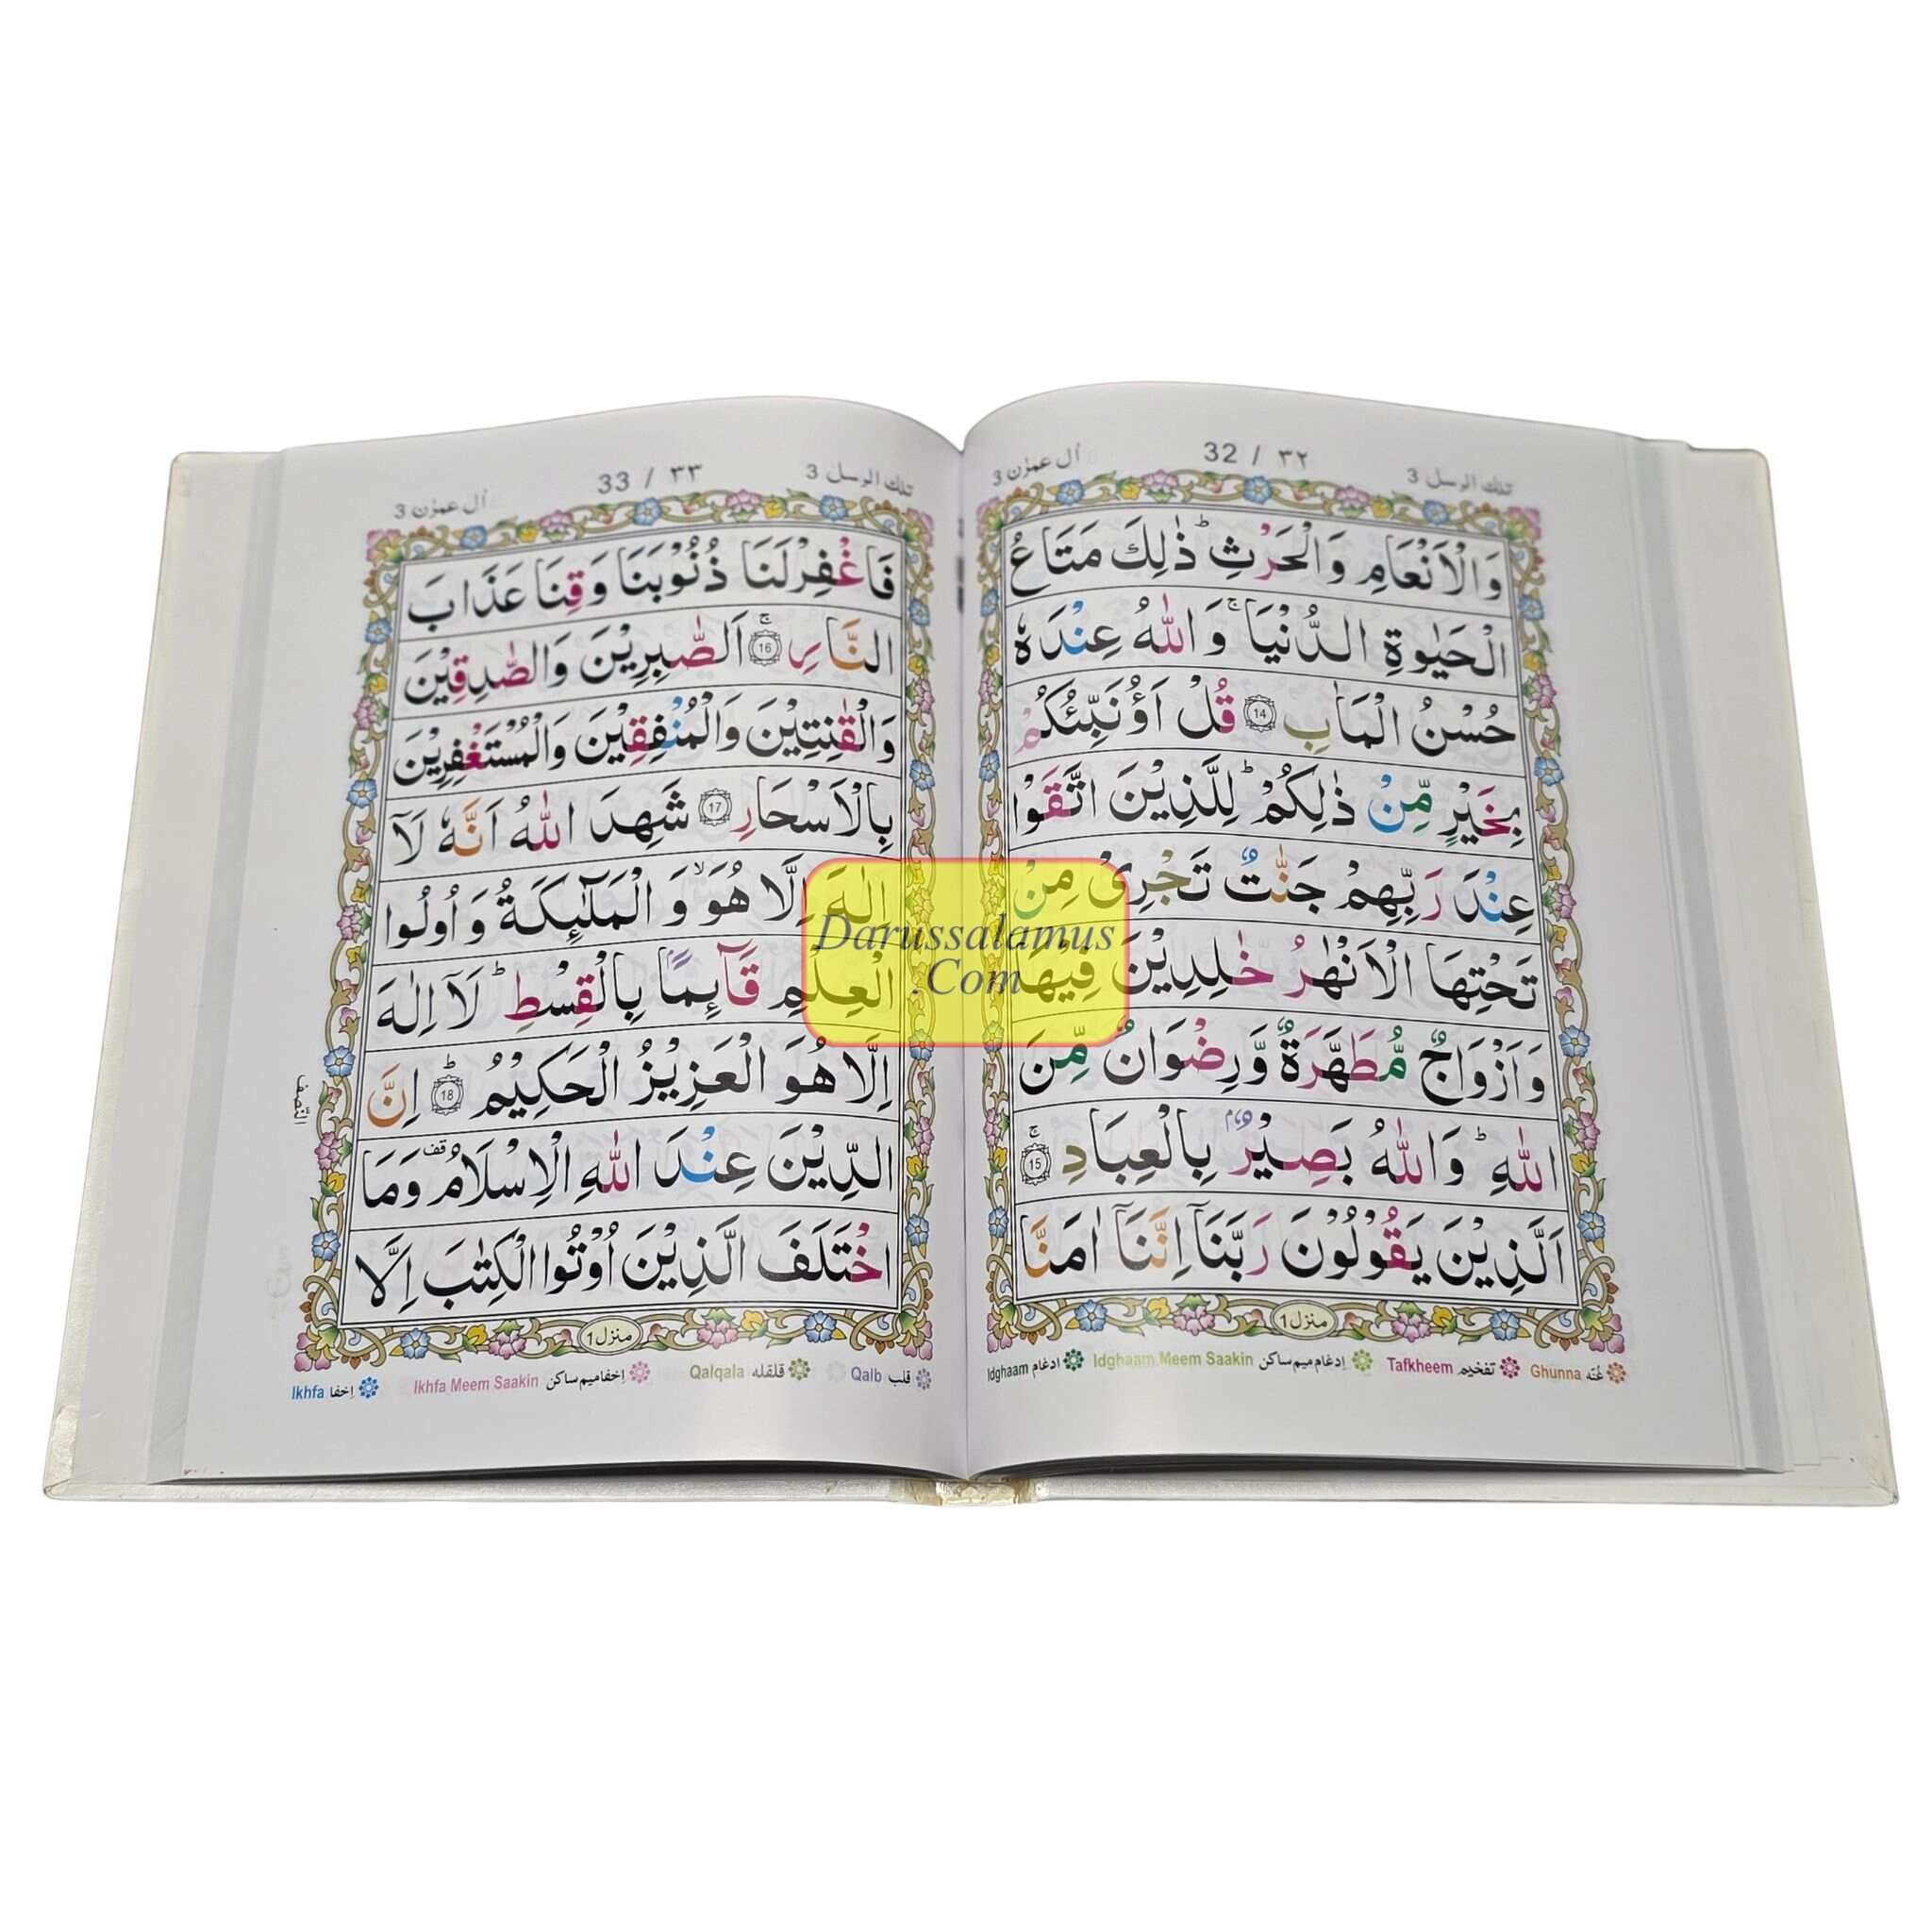 تلك الرسل 3
32 / ٣٢
اٰل عمرٰن 3
وَالۡاَنۡعَامِ وَالۡحَرۡثِ ؕ ذٰلِكَ مَتَاعُ
الۡحَيٰوةِ الدُّنۡيَا ۚ وَاللّٰهُ عِنۡدَهٗ
حُسۡنُ الۡمَاٰبِ 14 قُلۡ اَؤُنَبِّئُكُمۡ
بِخَيۡرٍ مِّنۡ ذٰلِكُمۡ ؕ لِلَّذِيۡنَ اتَّقَوۡا
عِنۡدَ رَبِّهِمۡ جَنّٰتٌ تَجۡرِىۡ مِنۡ
تَحۡتِهَا الۡاَنۡهٰرُ خٰلِدِيۡنَ فِيۡهَا
وَاَزۡوَاجٌ مُّطَهَّرَةٌ وَّرِضۡوَانٌ مِّنَ
اللّٰهِ ؕ وَاللّٰهُ بَصِيۡرٌۢ بِالۡعِبَادِ ۚ 15
اَلَّذِيۡنَ يَقُوۡلُوۡنَ رَبَّنَاۤ اِنَّنَاۤ اٰمَنَّا
منزل 1
Ghunna غُنّه
Tafkheem تفخيم
Idghaam Meem Saakin اِدغام ميم ساكن
Idghaam ادغام
تلك الرسل 3
33 / ٣٣
اٰل عمرٰن 3
فَاغۡفِرۡلَنَا ذُنُوۡبَنَا وَقِنَا عَذَابَ
النَّارِ ۚ 16 اَلصّٰبِرِيۡنَ وَالصّٰدِقِيۡنَ
وَالۡقٰنِتِيۡنَ وَالۡمُنۡفِقِيۡنَ وَالۡمُسۡتَغۡفِرِيۡنَ
بِالۡاَسۡحَارِ 17 شَهِدَ اللّٰهُ اَنَّهٗ لَاۤ
اِلٰهَ اِلَّا هُوَ ۙ وَالۡمَلٰٓئِكَةُ وَاُولُوا
الۡعِلۡمِ قَآئِمًا ۢ بِالۡقِسۡطِ ؕ لَاۤ اِلٰهَ
اِلَّا هُوَ الۡعَزِيۡزُ الۡحَكِيۡمُ ؕ 18 اِنَّ
النّصف
الدِّيۡنَ عِنۡدَ اللّٰهِ الۡاِسۡلَامُ قف وَمَا
اخۡتَلَفَ الَّذِيۡنَ اُوۡتُوا الۡكِتٰبَ اِلَّا
منزل 1
Qalb قلب
Qalqala قلقله
Ikhfa Meem Saakin اِخفا ميم ساكن
Ikhfa اِخفا
Darussalamus
.Com